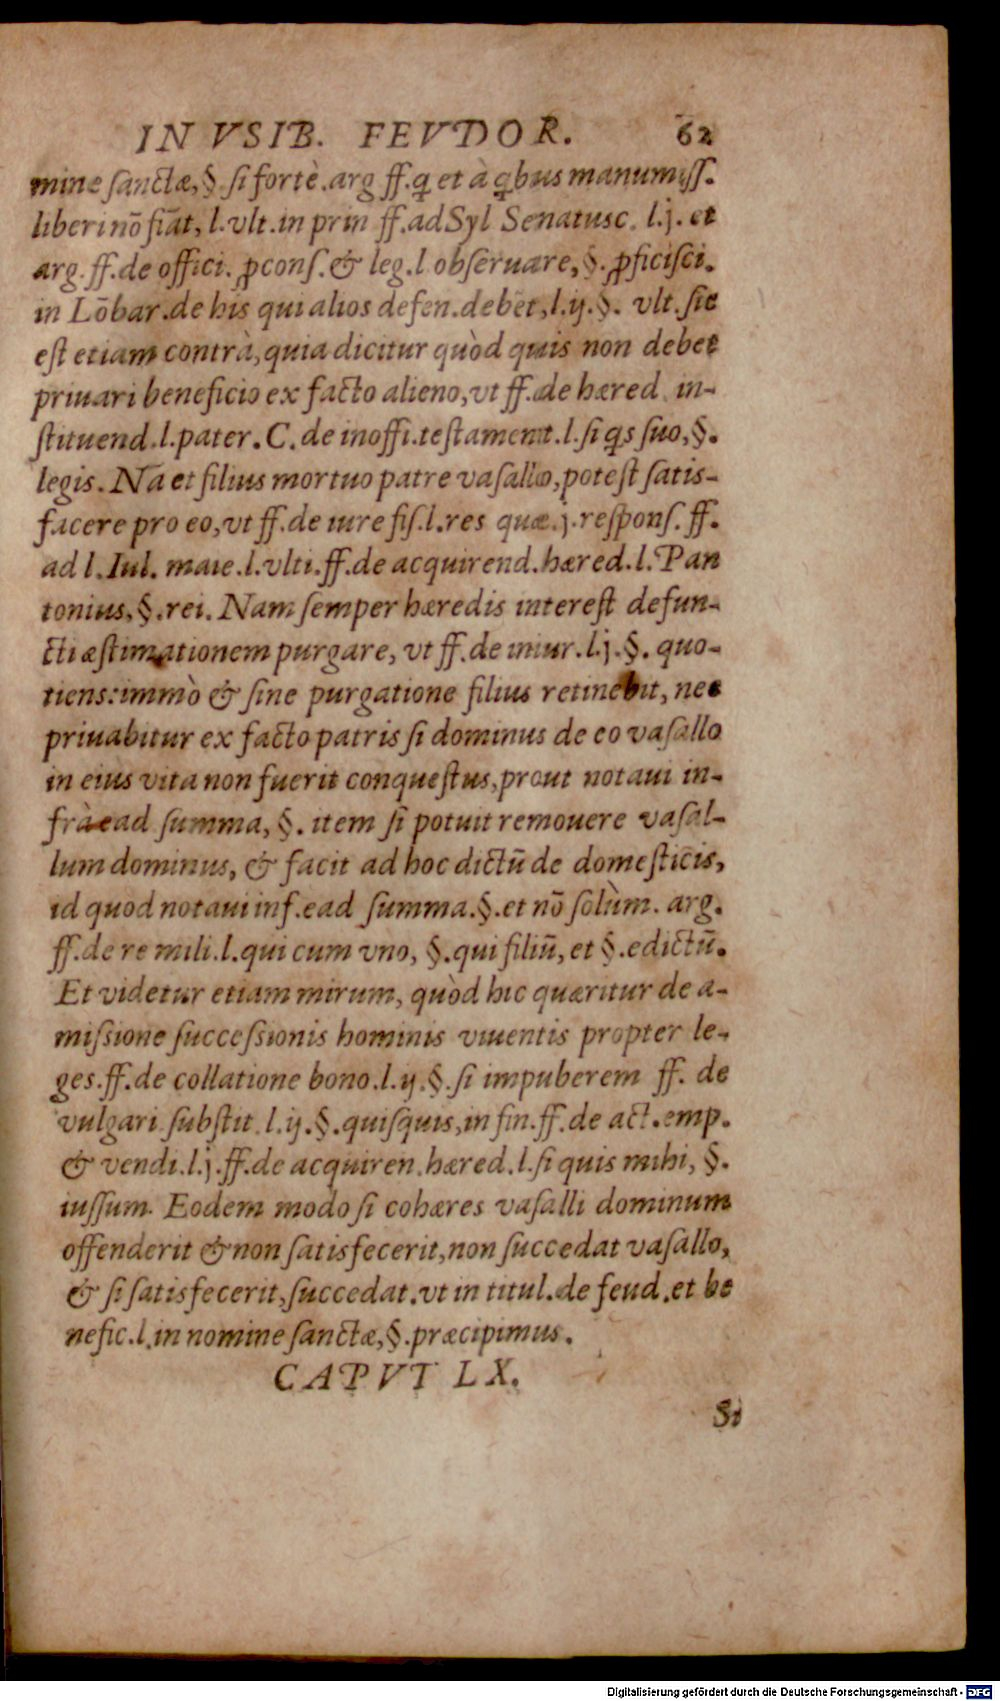 IN VSIB. FEVDOR. 62
mine sanctæ, §. si fortè. arg ff. q et à qbus manumiss.
liberi nō fiāt, l. vlt. in prin ff. ad Syl Senatusc. l. j. et
arg. ff. de offici. ꝓcons. & leg. l obseruare, §. ꝓficisci.
in Lōbar. de his qui alios defen. debēt, l. ij. §. vlt. sic
est etiam contrà, quia dicitur quòd quis non debet
priuari beneficio ex facto alieno, vt ff. de hæred. in-
stituend. l. pater. C. de inoffi. testament. l. si qs suo, §.
legis. Nā et filius mortuo patre vasallo, potest satis-
facere pro eo, vt ff. de iure fis. l. res quæ. j. respons. ff.
ad l. Iul. maie. l. vlti. ff. de acquirend. hæred. l. Pan
tonius, §. rei. Nam semper hæredis interest defun-
cti æstimationem purgare, vt ff. de iniur. l. j. §. quo-
tiens: immò & sine purgatione filius retinebit, nec
priuabitur ex facto patris si dominus de eo vasallo
in eius vita non fuerit conquestus, prout notaui in-
frà ead summa, §. item si potuit remouere vasal-
lum dominus, & facit ad hoc dictū de domesticis,
id quod notaui inf. ead summa. §. et nō solùm. arg.
ff. de re mili. l. qui cum vno, §. qui filiū, et §. edictū.
Et videtur etiam mirum, quòd hic quæritur de a-
missione successionis hominis viuentis propter le-
ges. ff. de collatione bono. l. ij. §. si impuberem ff. de
vulgari substit. l. ij. §. quisquis, in fin. ff. de act. emp.
& vendi. l. j. ff. de acquiren. hæred. l. si quis mihi, §.
iussum. Eodem modo si cohæres vasalli dominum
offenderit & non satisfecerit, non succedat vasallo,
& si satisfecerit, succedat. vt in titul. de feud. et be
nefic. l. in nomine sanctæ, §. præcipimus.
CAPVT LX.
Si
Digitalisierung gefördert durch die Deutsche Forschungsgemeinschaft - DFG